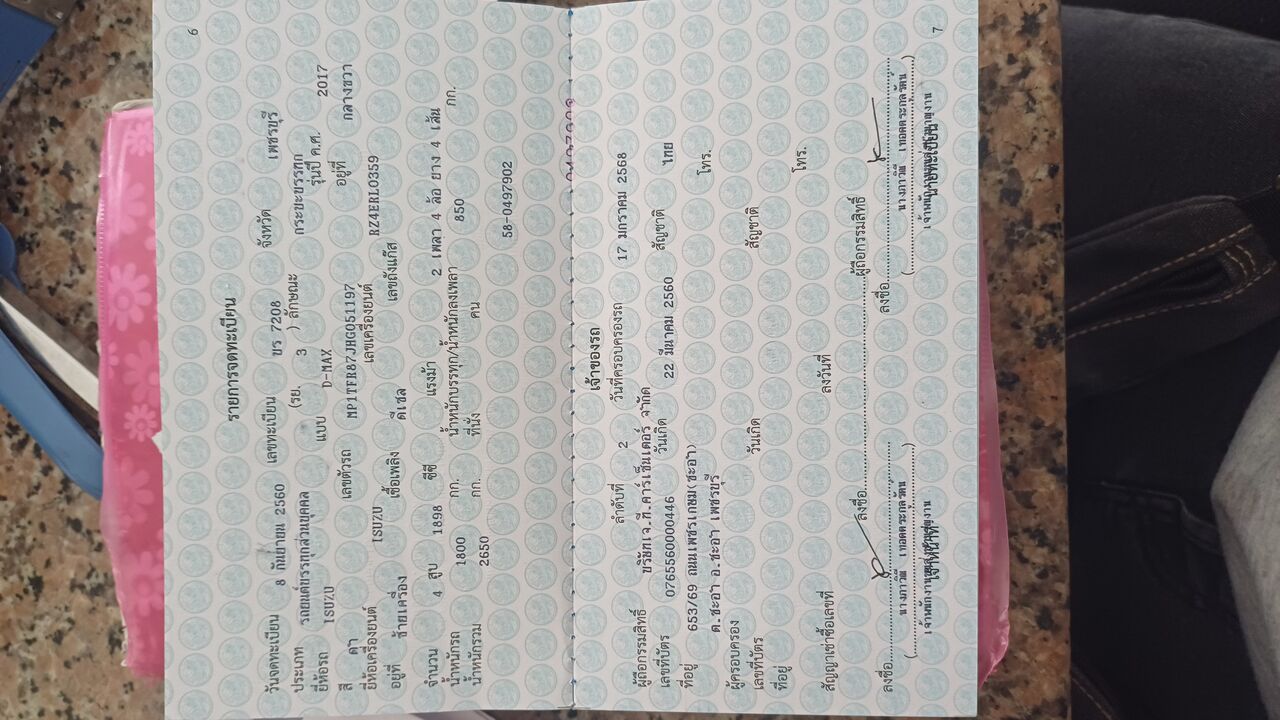 6
รายการจดทะเบียน
วันจดทะเบียน 8 กันยายน 2560 เลขทะเบียน ขร 7208 จังหวัด เพชรบุรี
ประเภท รถยนต์บรรทุกส่วนบุคคล (รย. 3 ) ลักษณะ กระบะบรรทุก
ยี่ห้อรถ ISUZU แบบ D-MAX รุ่นปี ค.ศ. 2017
สี ดำ เลขตัวรถ MP1TFR87JHG051197 อยู่ที่ กลางขวา
ยี่ห้อเครื่องยนต์ ISUZU เลขเครื่องยนต์ RZ4ERL0359
อยู่ที่ ซ้ายเครื่อง เชื้อเพลิง ดีเซล เลขถังแก๊ส
จำนวน 4 สูบ 1898 ซีซี แรงม้า 2 เพลา 4 ล้อ ยาง 4 เส้น
น้ำหนักรถ 1800 กก. น้ำหนักบรรทุก/น้ำหนักลงเพลา 850 กก.
น้ำหนักรวม 2650 กก. ที่นั่ง คน
58-0497902
เจ้าของรถ
ลำดับที่ 2 วันที่ครอบครองรถ 17 มกราคม 2568
ผู้ถือกรรมสิทธิ์ บริษัทเจ.ที.คาร์เซ็นเตอร์ จำกัด
เลขที่บัตร 0765560000446 วันเกิด 22 มีนาคม 2560 สัญชาติ ไทย
ที่อยู่ 653/69 ถนนเพชรเกษม(ชะอำ) โทร.
ต.ชะอำ อ.ชะอำ เพชรบุรี
ผู้ครอบครอง
เลขที่บัตร วันเกิด สัญชาติ
ที่อยู่ โทร.
สัญญาเช่าซื้อเลขที่ ลงวันที่
ลงชื่อ ผู้ถือกรรมสิทธิ์
ลงชื่อ ลงชื่อ
เจ้าหน้าที่ นายทะเบียน
7